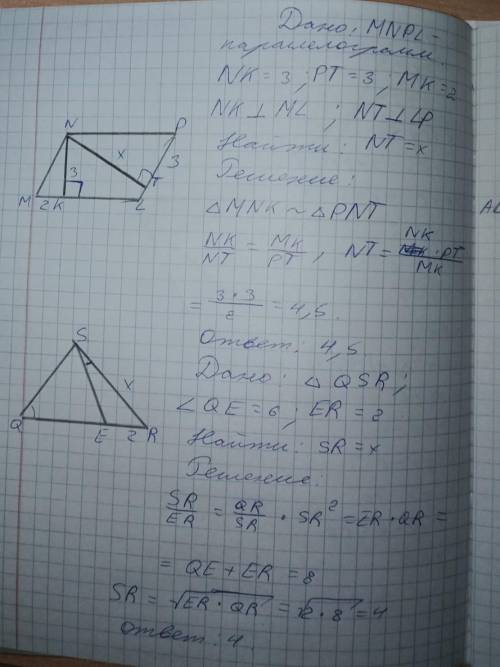 Дано: MNPL -
паралелограмм.
NK = 3; PT = 3; MK = 2
NK ⊥ ML ; NT ⊥ LP
Найти: NT = x
Решение:
△MNK ~ △PNT
NK/NT = MK/PT, NT = NK · PT/MK
= 3 · 3/2 = 4,5.
Ответ: 4,5.
Дано: △QSR;
∠QE = 6; ER = 2
Найти: SR = x
Решение:
SR/ER = QR/SR · SR² = ER · QR =
= QE + ER = 8
SR = √ER · QR = √2 · 8 = 4
Ответ: 4.
N P
x 3
3 T
M 2 K L
S
x
Q E 2 R